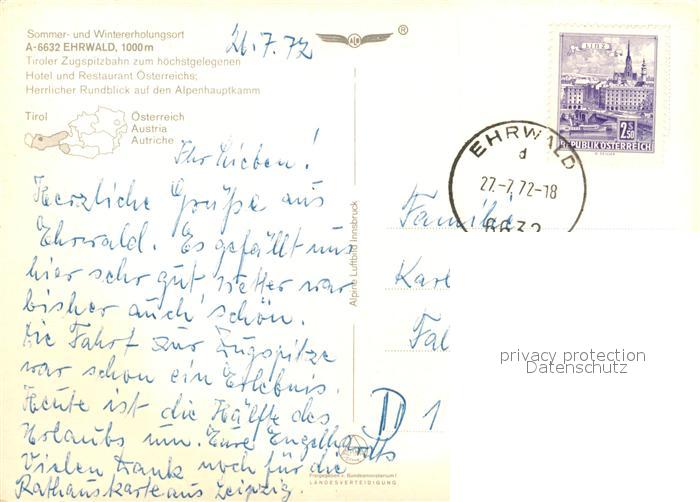 Sommer- und Wintererholungsort
A-6632 EHRWALD, 1000 m
Tiroler Zugspitzbahn zum höchstgelegenen
Hotel und Restaurant Österreichs;
Herrlicher Rundblick auf den Alpenhauptkamm
Tirol
Österreich
Austria
Autriche
26.7.72
®
Ihr Lieben!
Herzliche Grüße aus
Ehrwald. Es gefällt uns
hier sehr gut, Wetter war
bisher auch schön.
Die Fahrt zur Zugspitze
war schon ein Erlebnis.
Heute ist die Hälfte des
Urlaubs um. Eure Engelhardts
Vielen Dank noch für die
Rathauskarte aus Leipzig.
Alpine Luftbild Innsbruck
Freigegeben v. Bundesministerium f.
LANDESVERTEIDIGUNG
LINZ
2.50
REPUBLIK ÖSTERREICH
EHRWALD
d
27.-7.72-18
6632
Familie
Karl
Fal
D 1
privacy protection
Datenschutz